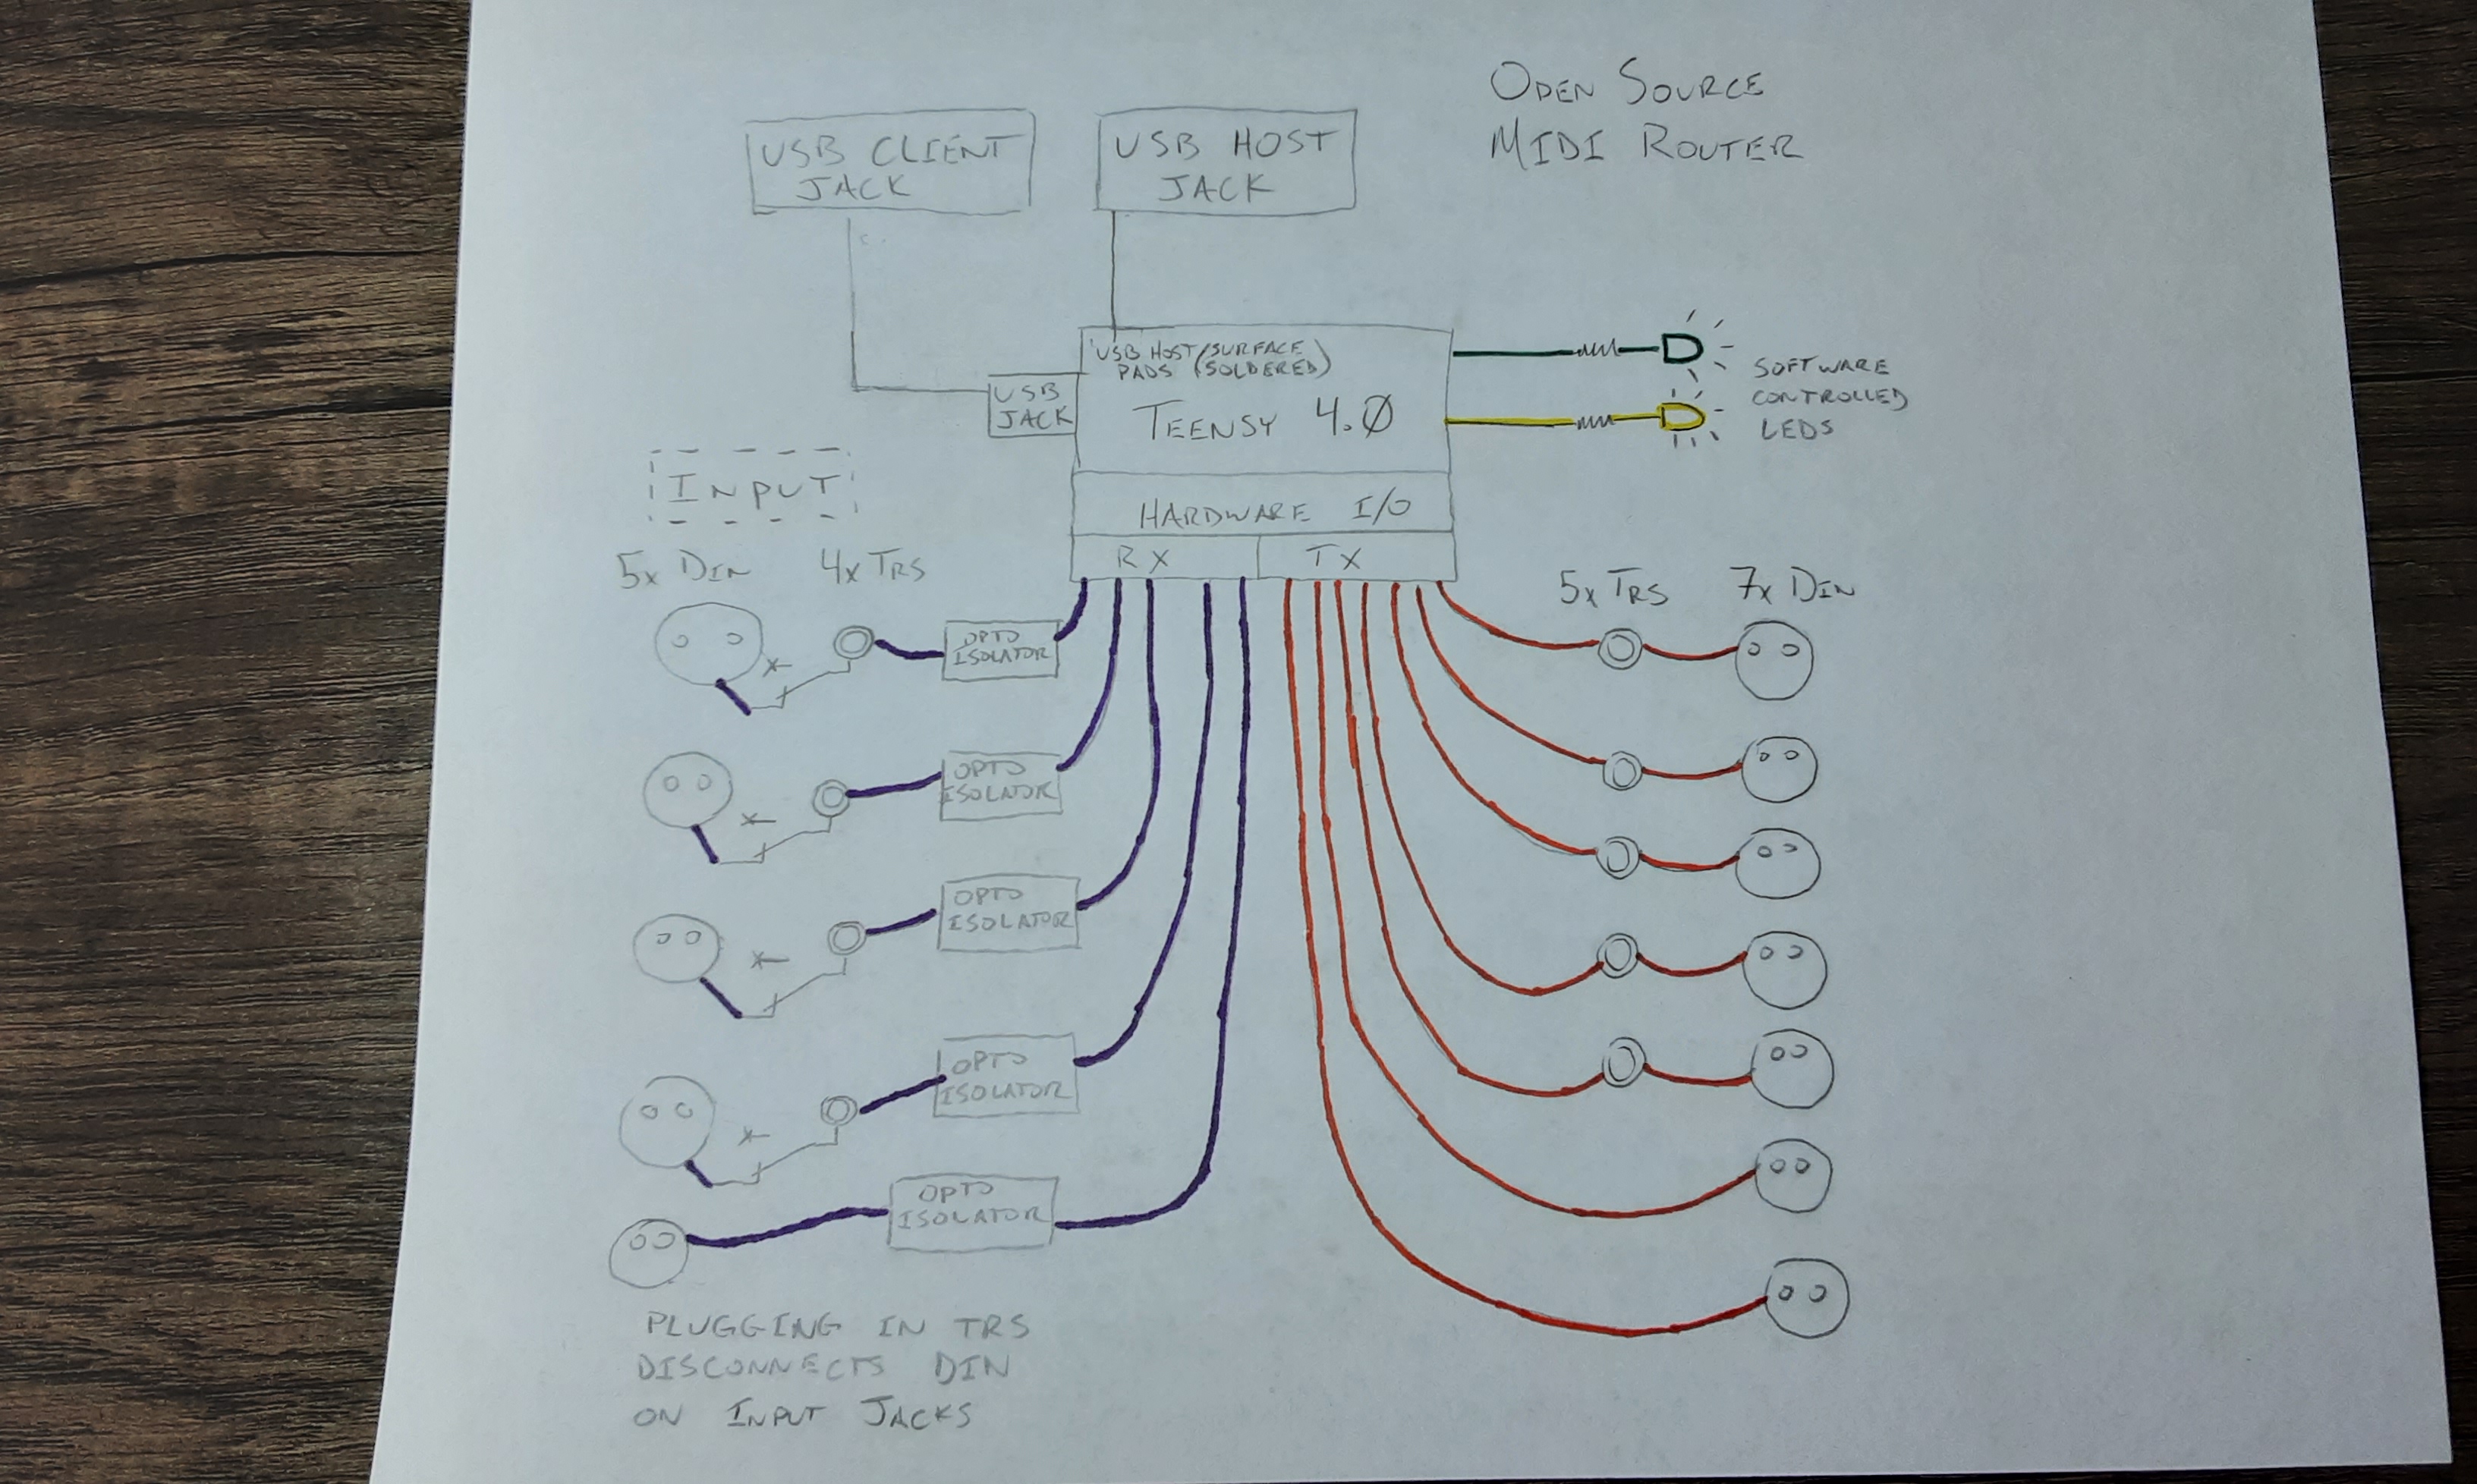 OPEN SOURCE
MIDI ROUTER
USB CLIENT
JACK
USB HOST
JACK
USB HOST (SURFACE
PADS (SOLDERED)
USB
JACK
TEENSY 4.0
SOFTWARE
CONTROLLED
LEDS
INPUT
HARDWARE I/O
RX
TX
5x DIN
4x TRS
5x TRS
7x DIN
OPTO
ISOLATOR
OPTO
ISOLATOR
OPTO
ISOLATOR
OPTO
ISOLATOR
OPTO
ISOLATOR
PLUGGING IN TRS
DISCONNECTS DIN
ON INPUT JACKS